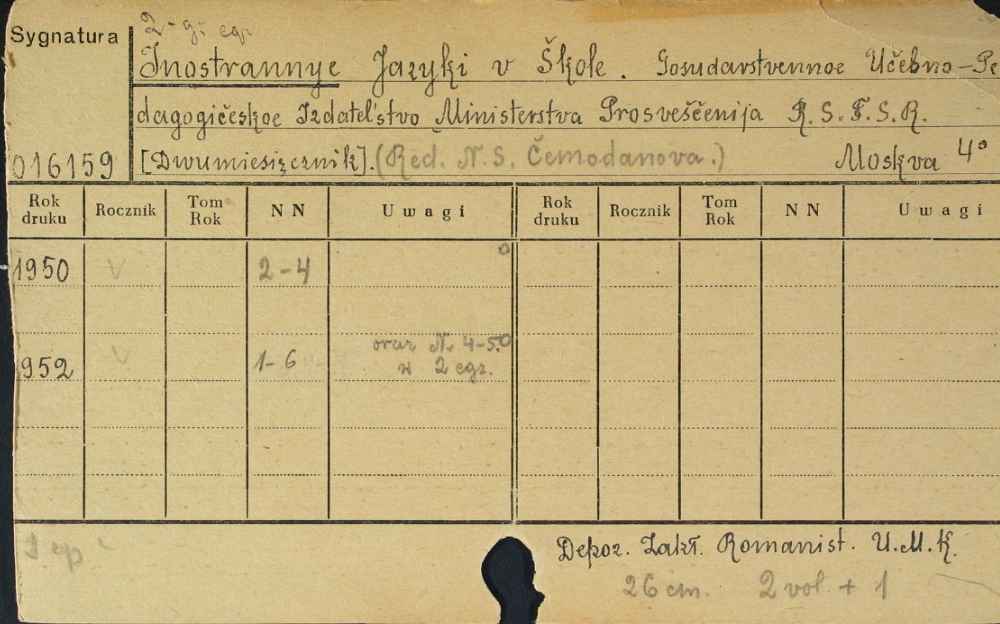 Sygnatura
2-gi eg.
Inostrannye Jazyki v Škole. Gosudarstvennoe Učebno-Pe
dagogičeskoe Izdatel'stvo Ministerstva Prosveščenija R.S.F.S.R.
016159 [Dwumiesięcznik]. (Red. N.S. Čemodanova.) Moskva 4°
Rok druku Rocznik Tom Rok NN Uwagi Rok druku Rocznik Tom Rok NN Uwagi
1950 V 2-4 0
oraz N. 4-5.0
952 V 1-6 w 2 egz.
Depoz. Zakł. Romanist. U.M.K.
26 cm. 2 vol. + 1